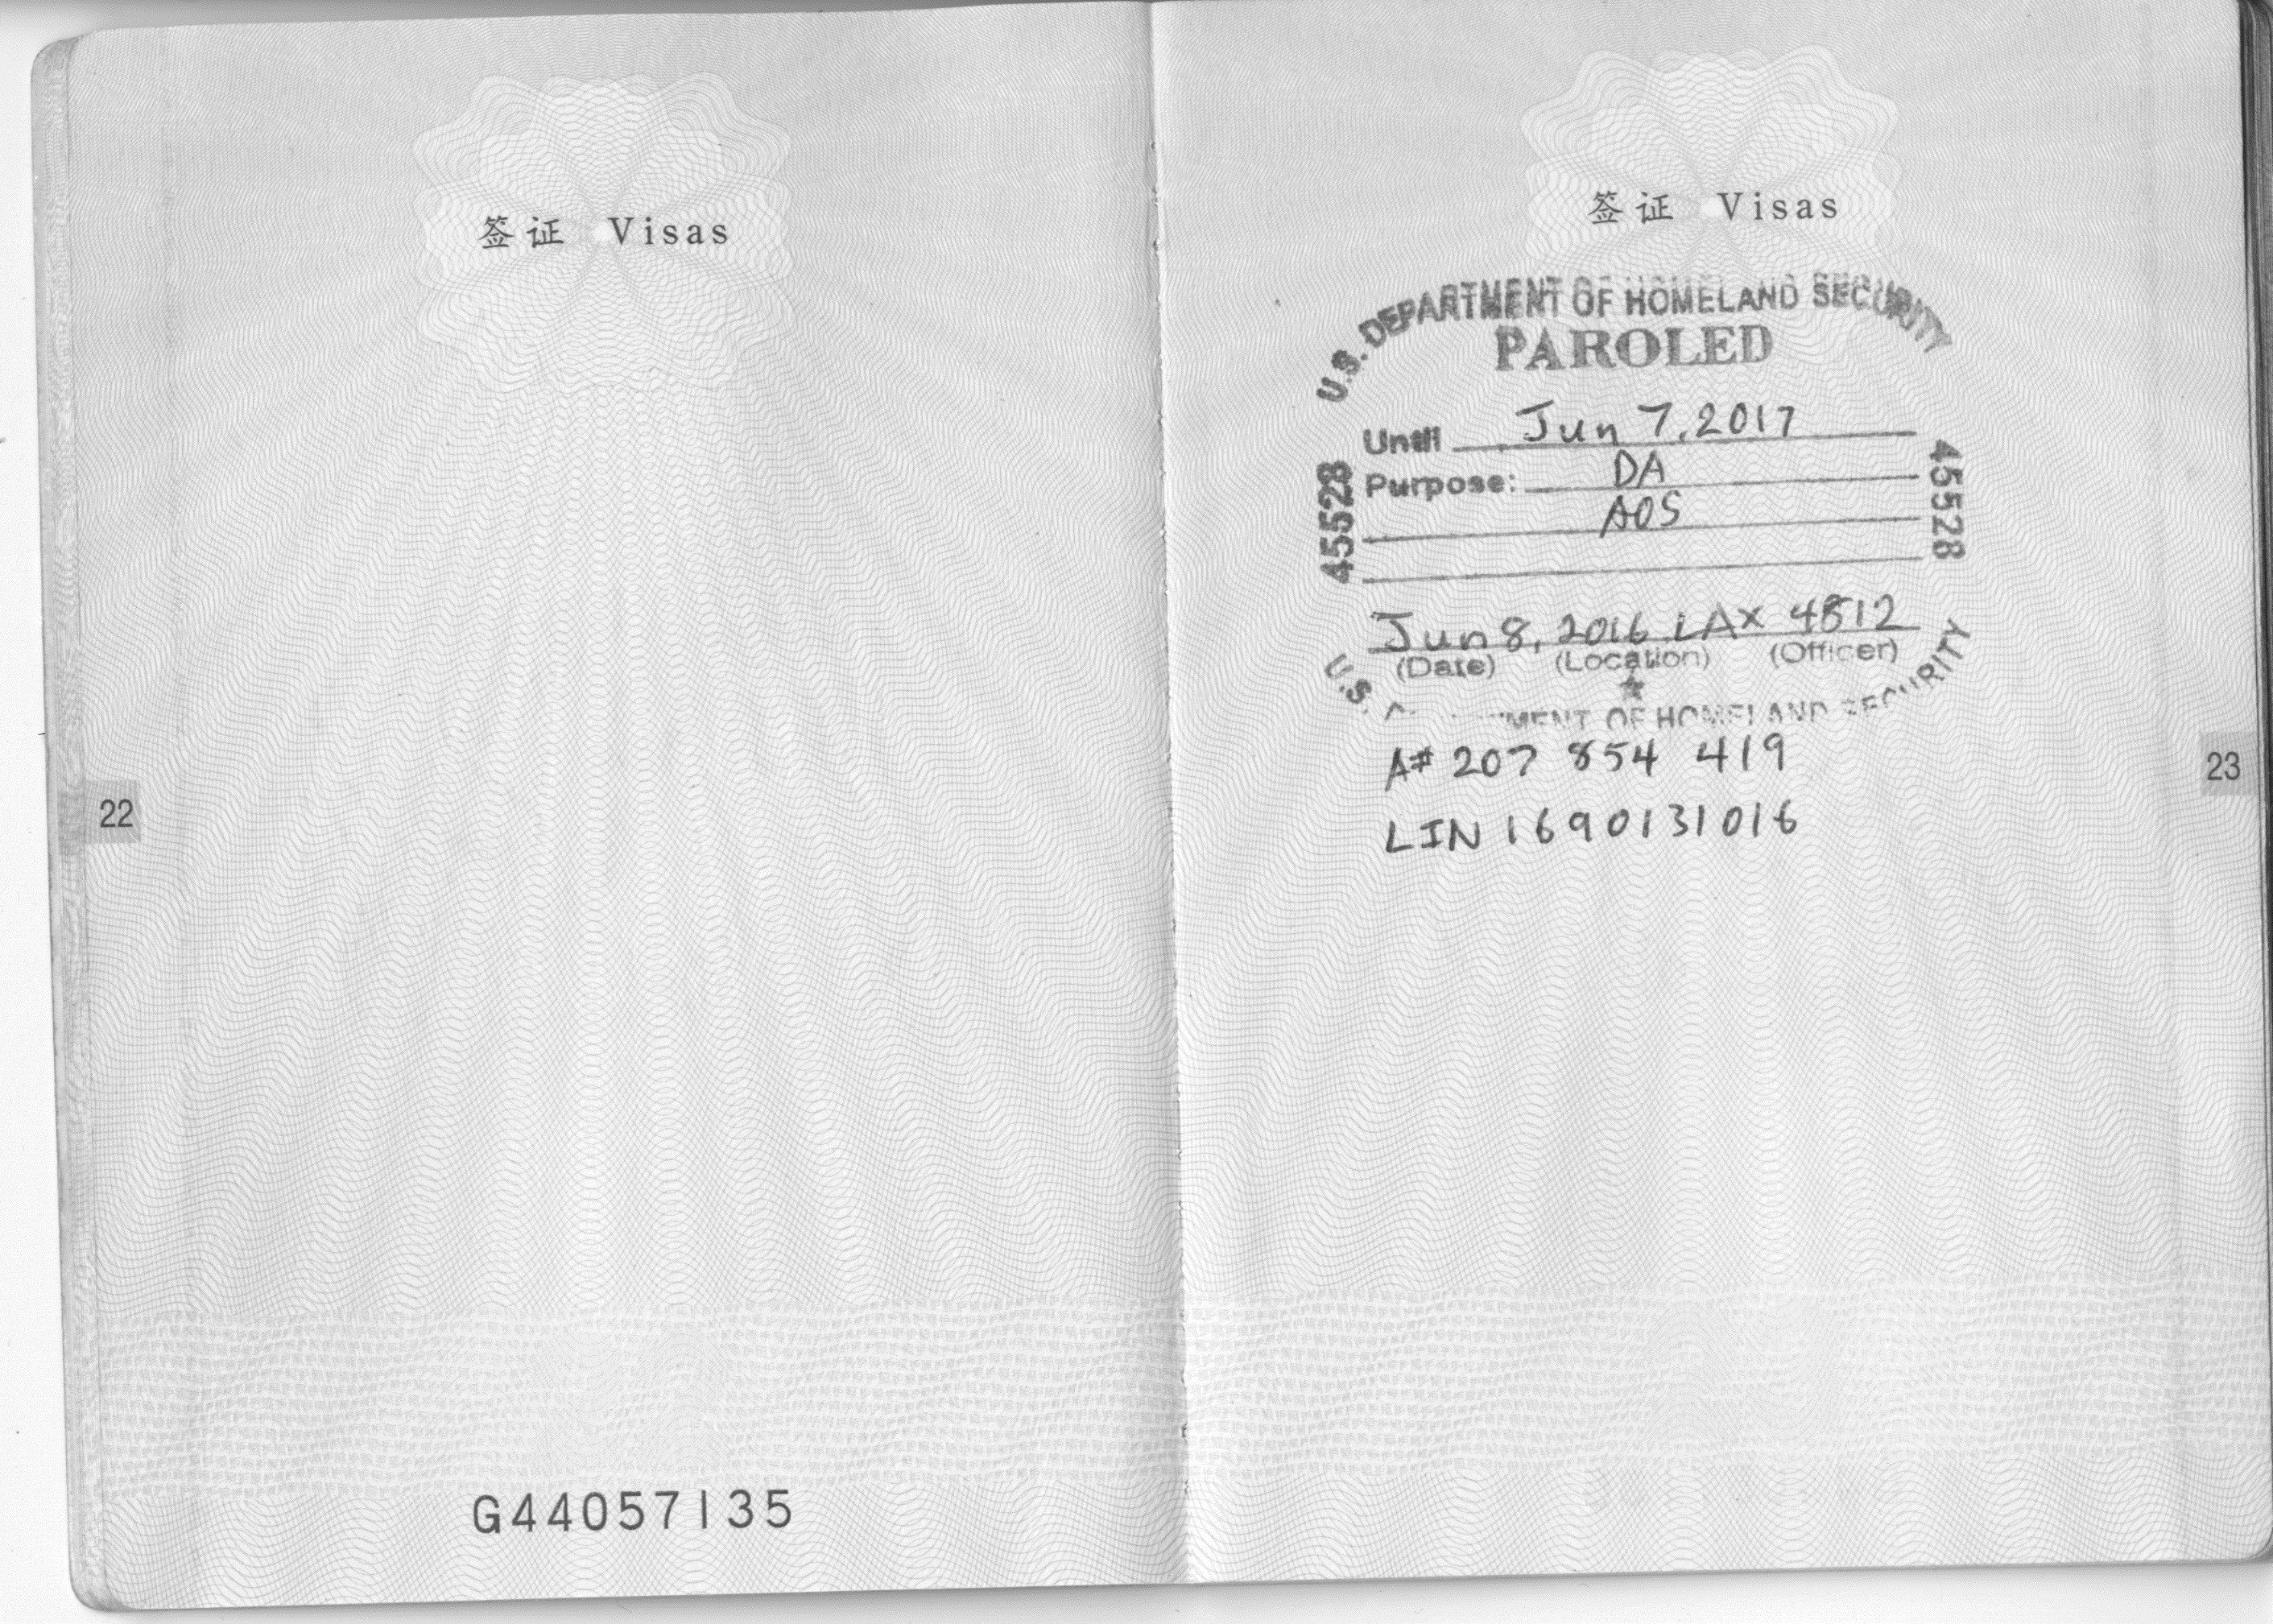 签证 Visas
22
G44057135
签证 Visas
U.S. DEPARTMENT OF HOMELAND SECURITY
PAROLED
Until Jun 7, 2017
Purpose: DA
AOS
45528
45528
Jun 8, 2016 LAX 4812
(Date) (Location) (Officer)
U.S. DEPARTMENT OF HOMELAND SECURITY
A# 207 854 419
LIN 1690131016
23